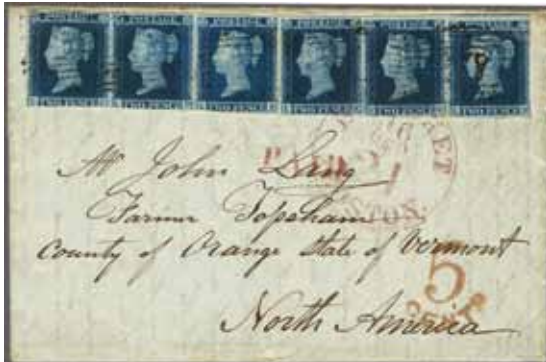 POSTAGE POSTAGE POSTAGE POSTAGE POSTAGE POSTAGE
TWO PENCE TWO PENCE TWO PENCE TWO PENCE TWO PENCE TWO PENCE
PAID
Mr John Lang
Farmer Topsham
County of Orange State of Vermont
5
North America